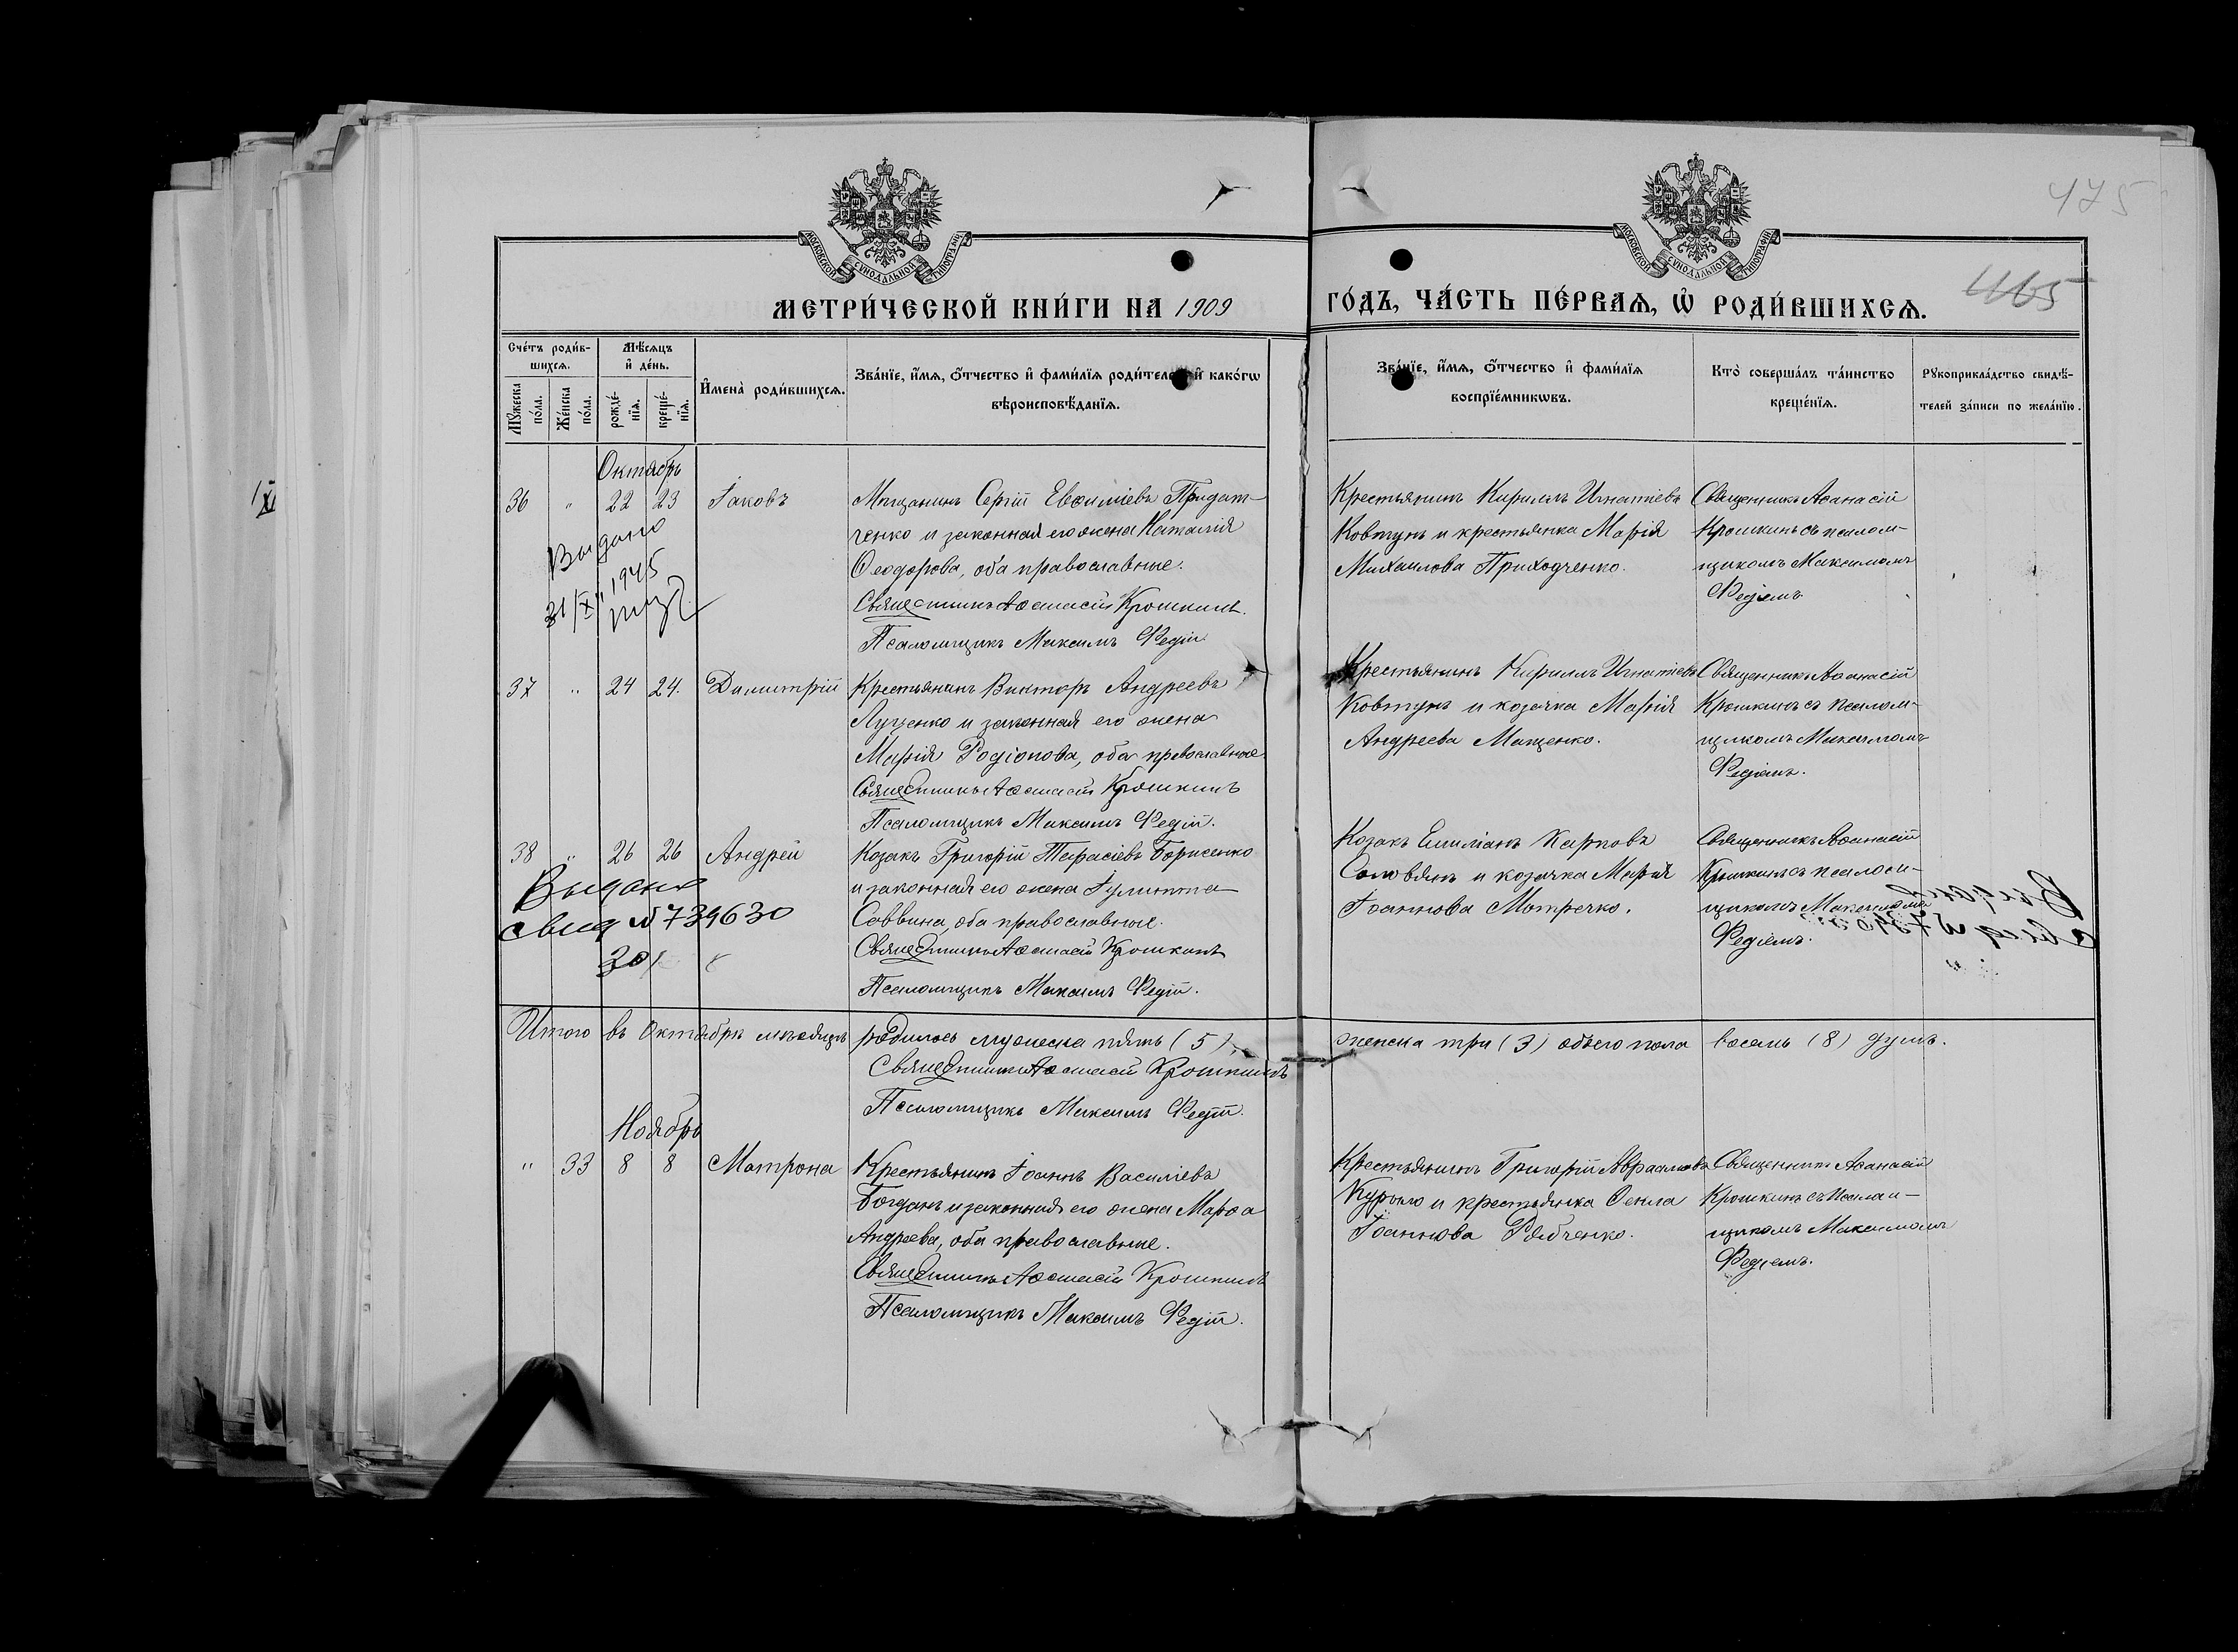 475
465
МОСКОВСКОЙ СѴНОДАЛЬНОЙ ТИПОГРАФІИ
МОСКОВСКОЙ СѴНОДАЛЬНОЙ ТИПОГРАФІИ
МЕТРИ́ЧЕСКОЙ КНИ́ГИ НА 1909
ГО́ДЪ, ЧА́СТЬ ПЕ́РВАѦ, Ѡ҆ РОДИ́ВШИХСѦ.
Сче́тъ роди́в-
шихсѧ.
Мꙋ́жеска по́ла.
Же́нска по́ла.
Мѣ́сѧцъ
и҆ де́нь.
рожде́-
нїѧ.
креще́-
нїѧ.
И҆мена̀ роди́вшихсѧ.
Зва́нїе, и҆́мѧ, ѻ҆́тчество и҆ фами́лїѧ роди́телей и҆ како́гѡ
вѣроисповѣ́данїѧ.
Зва́нїе, и҆́мѧ, ѻ҆́тчество и҆ фами́лїѧ
воспрїе́мникѡвъ.
Кто̀ соверша́лъ та́инство
креще́нїѧ.
Рꙋкоприкла́дство свидѣ́-
телей за́писи по жела́нїю.
Октябрь
36 " 22 23 Іаковъ
Мѣщанинъ Сергій Евѳиміевъ Придат-
ченко и законная его жена Наталія
Ѳеодорова, оба православные.
Священникъ Аѳанасій Крошкинъ.
Псаломщикъ Максимъ Редій
Крестьянинъ Кириллъ Игнатіевъ
Ковтунъ и крестьянка Марія
Михаилова Приходченко.
Священникъ Аѳанасій
Крошкинъ съ псалом-
щикомъ Максимомъ
Редіемъ
Выдано
1945
37 " 24 24. Димитрій
Крестьянинъ Викторъ Андреевъ
Луценко и законная его жена
Марія Родіонова, оба православные.
Священникъ Аѳанасій Крошкинъ
Псаломщикъ Максимъ Редій.
Крестьянинъ Кириллъ Игнатіевъ
Ковтунъ и козачка Марія
Андреева Мащенко.
Священникъ Аѳанасій
Крошкинъ съ псалом-
щикомъ Максимомъ
Редіемъ.
38 " 26 26 Андрей
Козакъ Григорій Тарасіевъ Борисенко
и законная его жена Іулитта
Саввина, оба православные.
Священникъ Аѳанасій Крошкинъ
Псаломщикъ Максимъ Редій.
Козакъ Емиліанъ Карповъ
Соловянъ и козачка Марія
Іоаннова Мотречко.
Священникъ Аѳанасій
Крошкинъ съ псалом-
щикомъ Максимомъ
Редіемъ.
Выдано
свид №739630
30/
Итого въ Октябрѣ мѣсяцѣ родилось мужеска пять (5), женска три (3) обоего пола восемь (8) душъ.
Священникъ Аѳанасій Крошкинъ
Псаломщикъ Максимъ Редій.
Ноябрь
" 33 8 8 Матрона
Крестьянинъ Іоаннъ Василіевъ
Богданъ и законная его жена Марѳа
Андреева, оба православные.
Священникъ Аѳанасій Крошкинъ
Псаломщикъ Максимъ Редій.
Крестьянинъ Григорій Авраамовъ
и крестьянка Ѳекла
Іоаннова Рябченко.
Священникъ Аѳанасій
Крошкинъ съ псалом-
щикомъ Максимомъ
Редіемъ.